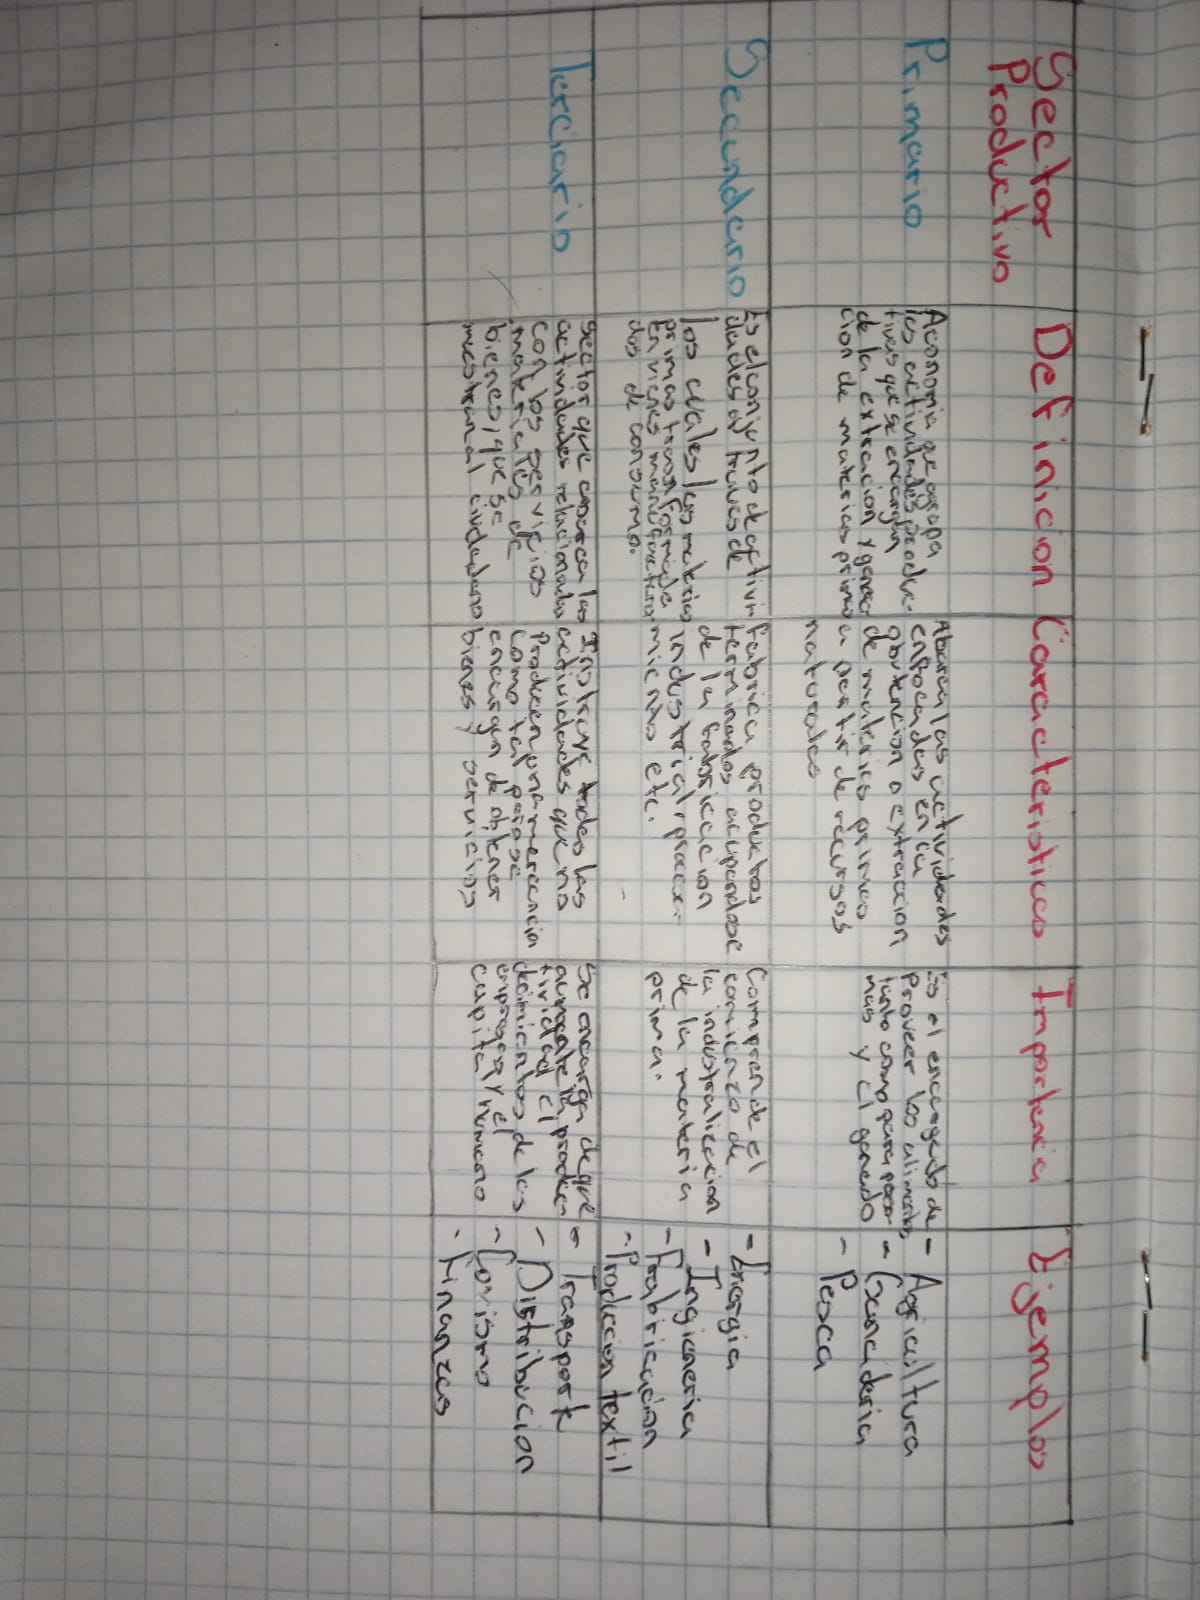 Sector
Productivo
Definicion
Caracteristicas
Importancia
Ejemplos
Primario
Aconomia que agrupa
las actividades produc-
tivas que se encargan
de la extracion y gener
cion de materias primas
Abarca las actividades
enfocadas en la
obtencion o extraccion
de materias primas
a partir de recursos
naturales
Es el encargado de
Proveer los alimentos
tanto como para perso-
nas y el ganado
- Agricultura
- Ganaderia
- Pesca
Secundario
Es el conjunto de activi
dades a traves de
los cuales las materias
primas transformada
en vienes manufactura
dos de consumo.
fabrica productos
terminados ocupandose
de la fabricacion
industrial, procex-
miento etc.
Comprende el
comienzo de
la industralizacion
de la materia
prima.
- Energia
- Ingieneria
- Frabricacion
- Produccion textil
Terciario
Sector que abarca las
actividades relacionadas
con los servicios
materiales de
bienes, que se
al ciudadano
todas las
actividades que no
Producen una merecancia
como tal, pero se
encargan de obtener
bienes y servicios
Se encarga de que
aumente la produc-
tividad el
de los
empregos y el
capital humano
- Transporte
- Distribucion
- Torismo
- Finanzas